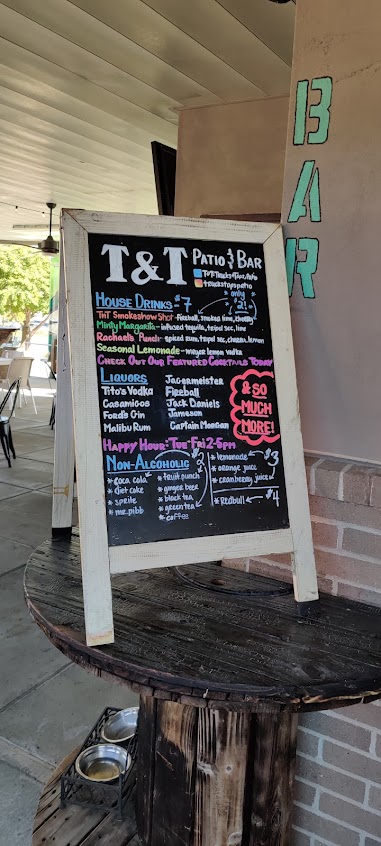 BAR
T&T PATIO & BAR
TNTTrucks&Taps.Patio
truckstapspatio
HOUSE DRINKS $7
only $21
TNT Smokeshow Shot - Fireball, smoked lime,
Minty Margarita - infused tequila, tripel sec, lime
Rachael's Punch - spiced rum, tripel sec, cheater, lemon
Seasonal Lemonade - meyer lemon vodka
CHECK OUT OUR FEATURED COCKTAILS TODAY
LIQUORS
Tito's Vodka
Casamigos
Ford's Gin
Malibu Rum
Jagermeister
Fireball
Jack Daniels
Jameson
Captain Morgan
& SO
MUCH
MORE!
HAPPY HOUR - TUE-FRI 2-5pm
NON-ALCOHOLIC
coca cola
diet coke
sprite
mr. pibb
fruit punch
ginger beer
black tea
green tea
coffee
lemonade $3
orange juice
cranberry juice
Redbull $4